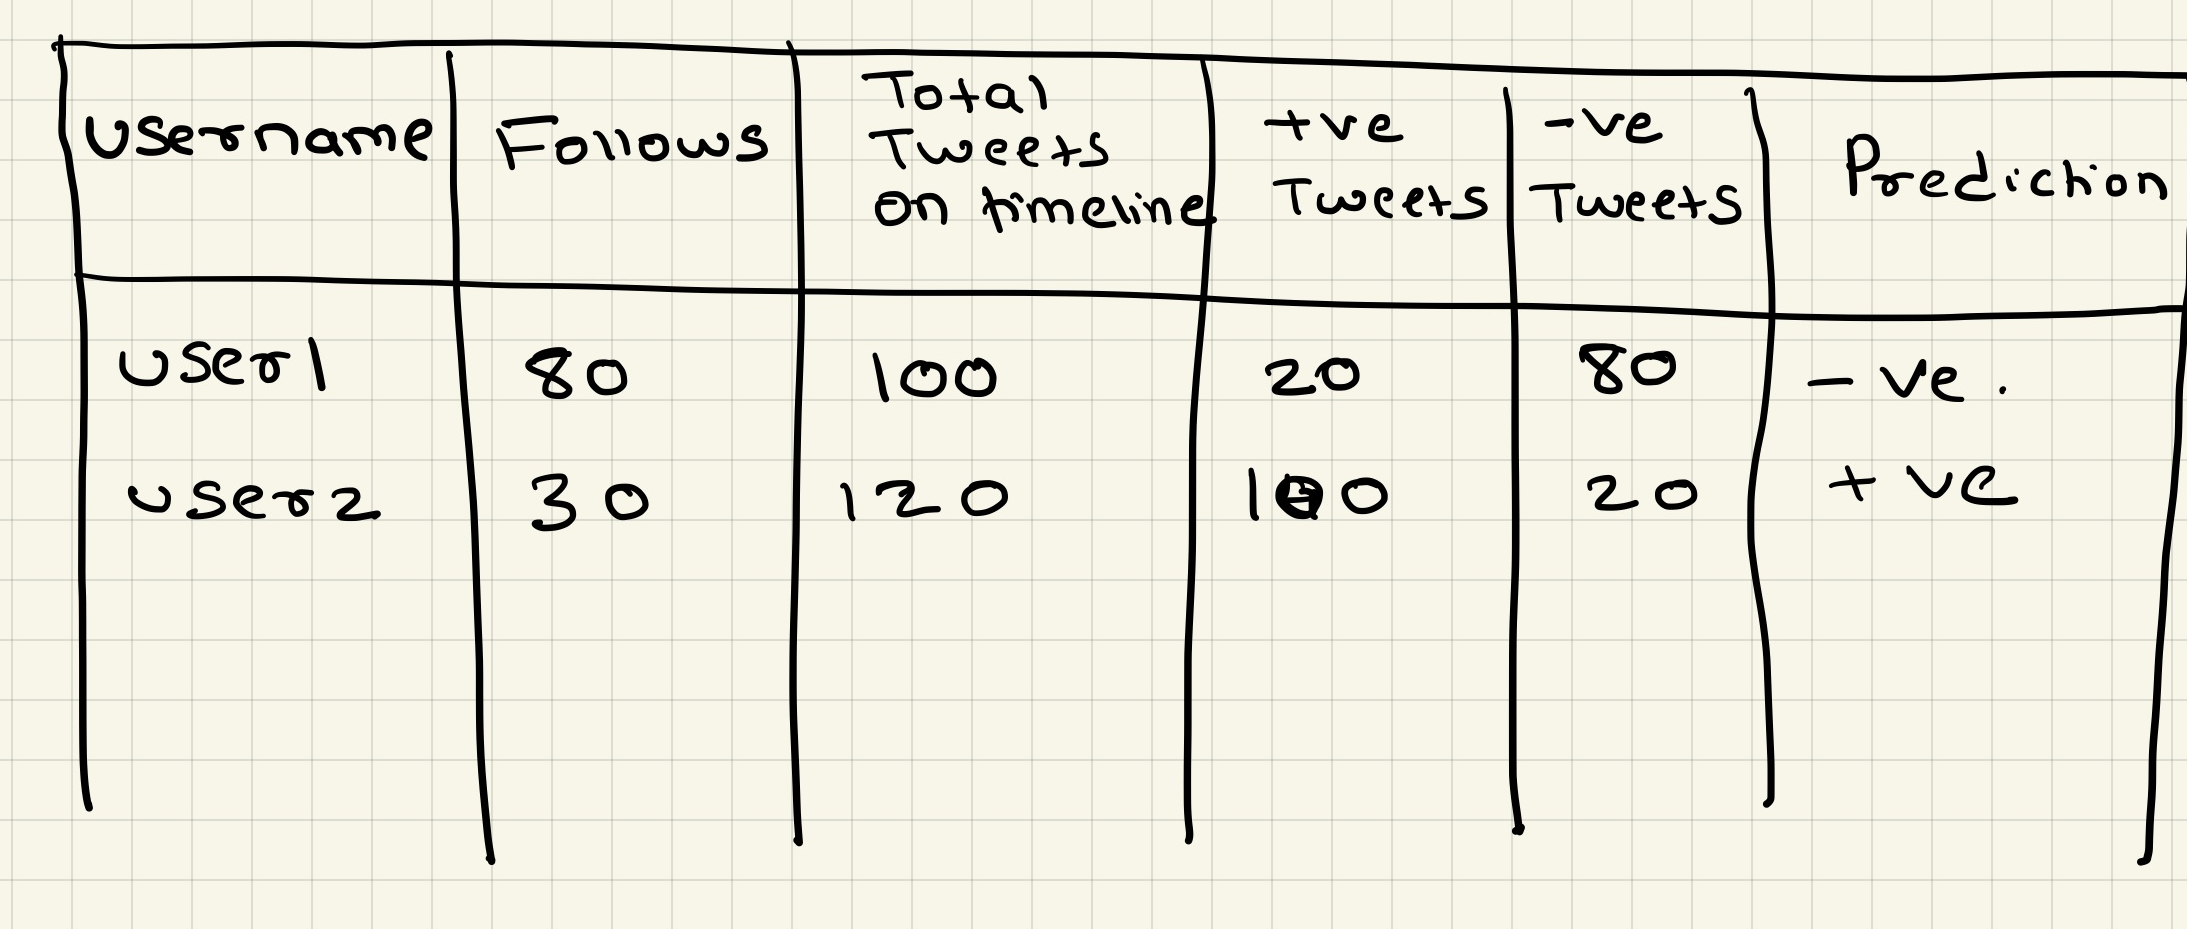 Username Follows Total Tweets on timeline +ve Tweets -ve Tweets Prediction
user1 80 100 20 80 -ve.
user2 30 120 100 20 +ve